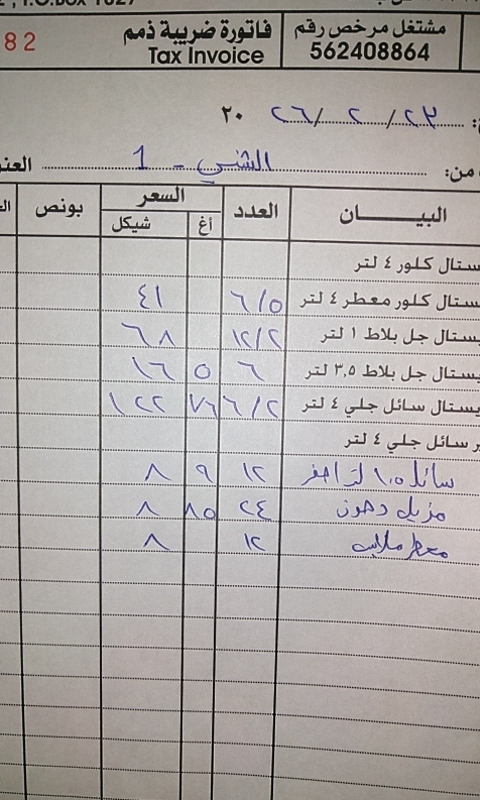 P.O.Box 1027
مشتغل مرخص رقم
562408864
فاتورة ضريبة ذمم
Tax Invoice
82
٢٣/ ٢ /٢٠٢٦
من: الشني - 1
البيـــــان العدد السعر بونص
أغ شيكل
ستال كلور ٤ لتر
ستال كلور معطر ٤ لتر ٦/٥ ٤١
يستال جل بلاط ١ لتر ١٢/٢ ٦٨
يستال جل بلاط ٣,٥ لتر ٦ ٥ ١٦
يستال سائل جلي ٤ لتر ٦/٢ ٧٦ ١٢٢
ر سائل جلي ٤ لتر
سائل ١,٥ لتر اصفر ١٢ ٩ ٨
مزيل دهون ٢٤ ٨٥ ٨
معطر ملابس ١٢ ٨